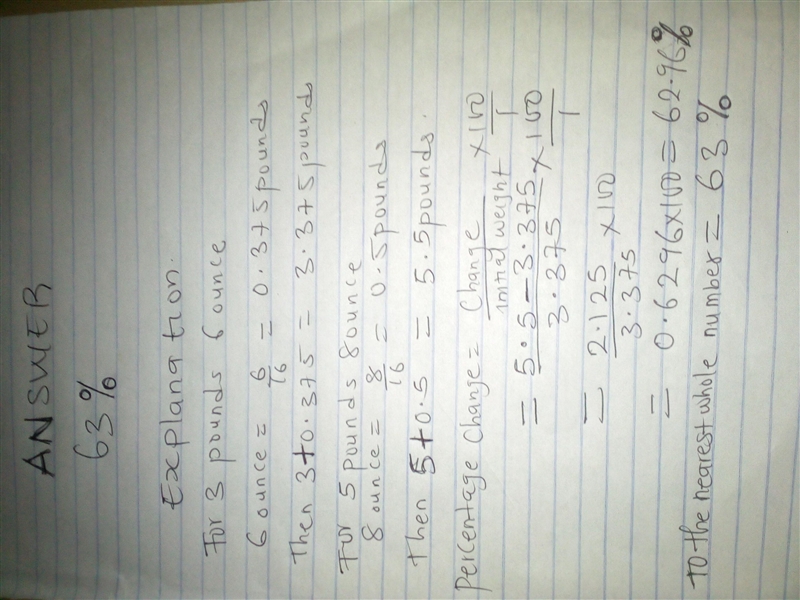 ANSWER
63%
Explanation.
For 3 pounds 6 ounce
6 ounce = 6/16 = 0.375pounds
Then 3+0.375 = 3.375pounds
For 5pounds 8ounce
8 ounce = 8/16 = 0.5pounds
Then 5+0.5 = 5.5pounds.
Percentage Change = Change/initial weight × 100/1
= 5.5-3.375/3.375 × 100/1
= 2.125/3.375 × 100
= 0.6296×100 = 62.96%
To the nearest whole number = 63%